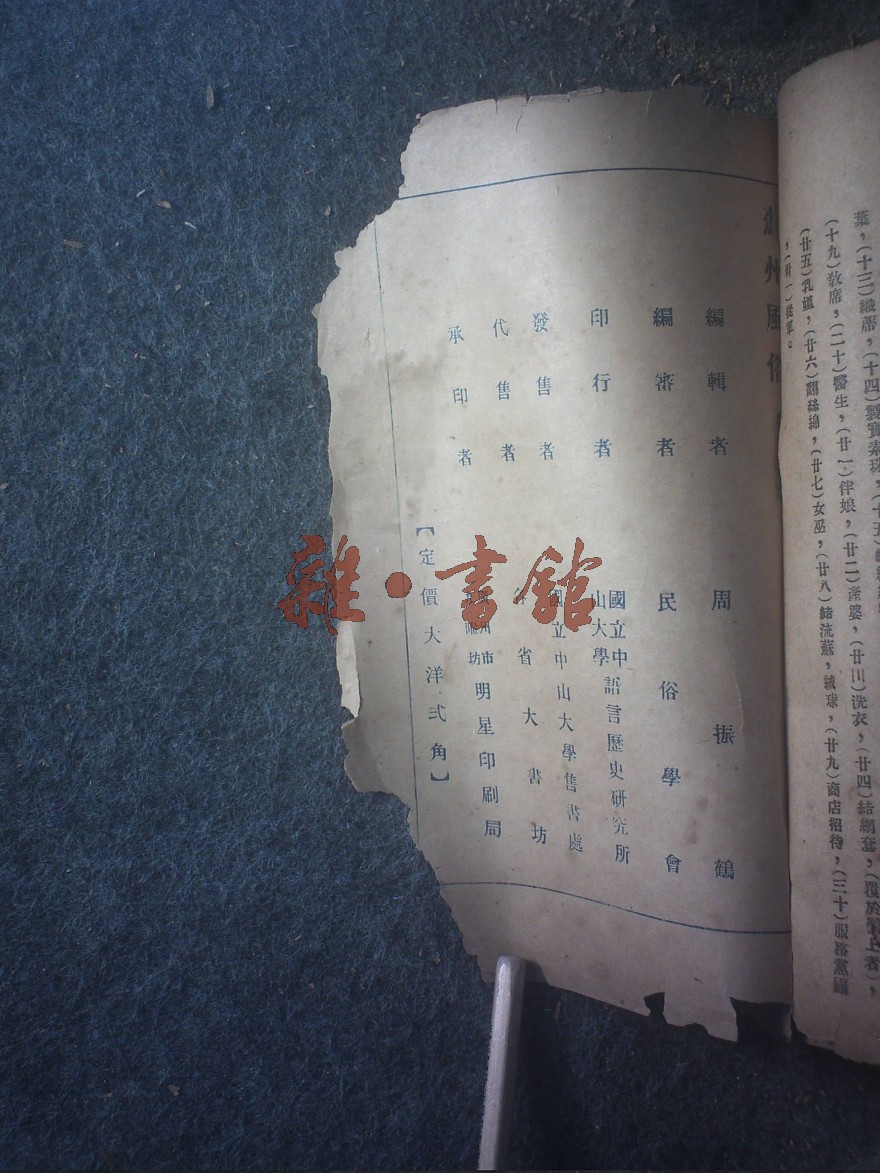 葉，(十三)織蓆，(十四)製寶素珠，(十五)
(十九)教席，(二十)醫生，(廿一)伴娘，(廿二)產婆，(廿川)洗衣，(廿四)結網套，(覆於髻上者)，
(廿五)乳媼，(廿六)翻絲綿，(廿七)女巫，(廿八)結流蘇，絨球，(廿九)商店招待，(三十)服務黨國
，(卅一)從軍。
蘇州風俗
編輯者 周振鶴
編審者 民俗學會
印行者 國立中山大學語言歷史研究所
發售者 國立中山大學售書處
代售者 各省大書坊
承印者 州市 坊 明星印刷局
【定價大洋弍角】
雜·書館